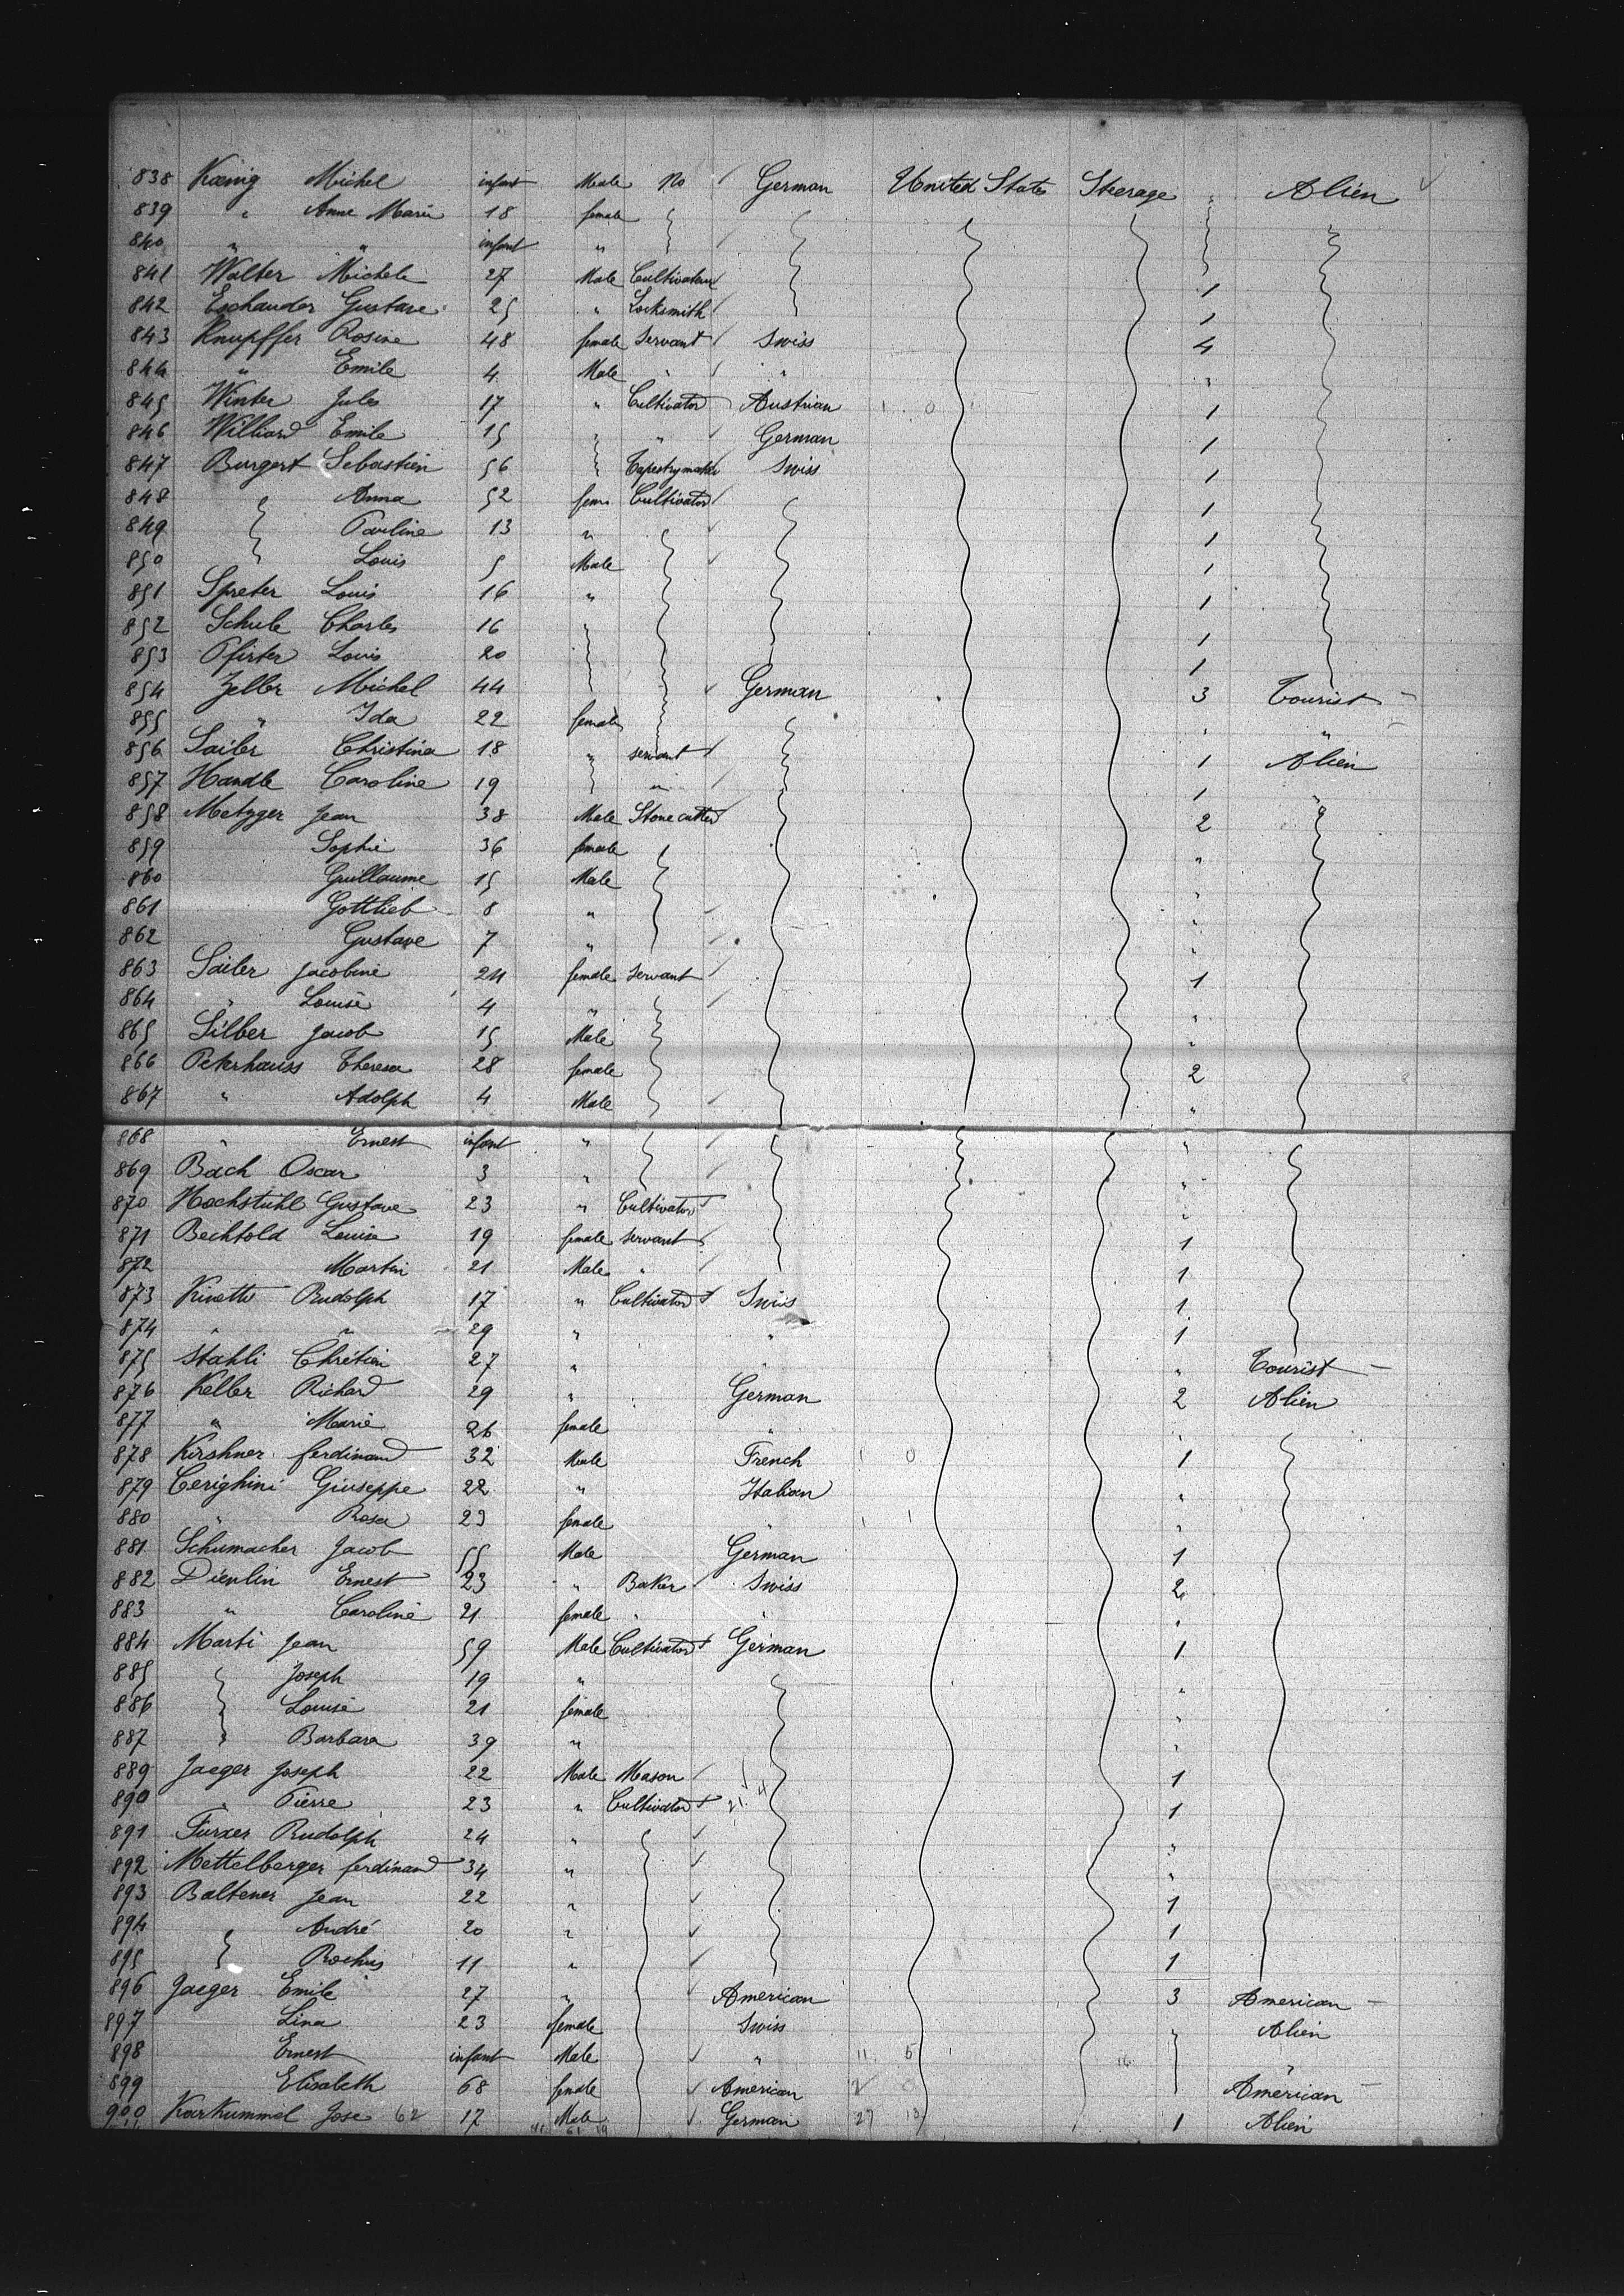 838 Kœnig Michel infant Male No German United States Steerage " Alien
839 " Anne Marie 18 female
840 " " infant "
841 Walter Michele 27 Male Cultivateur 1
842 Eschander Gustave 25 " Locksmith 1
843 Knupffer Rosine 48 female Servant Swiss 4
844 " Emile 4 Male " " "
845 Winter Jules 17 " Cultivator Austrian 1 0 1
846 Williard Emile 15 " " German 1
847 Burgert Sebastien 56 Tapestrymaker Swiss 1
848 Anna 52 fem. Cultivator 1
849 Pauline 13 " 1
850 Louis 5 Male 1
851 Spreter Louis 16 " 1
852 Schule Charles 16 " 1
853 Pfirter Louis 20 1
854 Zeller Michel 44 German 3 Tourist
855 " Ida 22 female " "
856 Sailer Christina 18 " servant 1 Alien
857 Handle Caroline 19 " 1 "
858 Metzger Jean 38 Male Stone cutter 2 "
859 Sophie 36 female "
860 Guillaume 15 Male "
861 Gottlieb 8 " "
862 Gustave 7 " "
863 Sailer Jacobine 24 female Servant 1
864 " Louise 4 " "
865 Silber Jacob 15 Male "
866 Peterhauss Theresa 28 female 2
867 " Adolph 4 Male "
868 " Ernest infant " "
869 Bach Oscar 3 " "
870 Hochstuhl Gustave 23 " Cultivator "
871 Bechtold Louise 19 female servant 1
872 Martin 21 Male " 1
873 Kinetti Rudolph 17 " Cultivator Swiss 1
874 " " 29 " " 1
875 Stahli Chrétien 27 " " " Tourist
876 Keller Richard 29 " German 2 Alien
877 " Marie 26 female " "
878 Kirshner ferdinand 32 Male French 1 0 1
879 Cerighini Giuseppe 22 " Italian "
880 " Rosa 23 female " 1 1 "
881 Schumacher Jacob 55 Male German 1
882 Dienlin Ernest 23 " Baker Swiss 2
883 " Caroline 21 female " " "
884 Marti Jean 59 Male Cultivator German 1
885 Joseph 19 " "
886 Louise 21 female "
887 Barbara 39 " "
889 Jaeger Joseph 22 Male Mason 1
890 " Pierre 23 " Cultivator 1
891 Furxer Rudolph 24 " "
892 Mettelberger ferdinand 34 " "
893 Baltener Jean 22 " 1
894 André 20 " 1
895 Rochus 11 " 1
896 Jaeger Emile 27 " American 3 American
897 Lina 23 female Swiss " Alien
898 Ernest infant Male " 11 5 "
899 Elisabeth 68 female American 2 0 American
900 Karkummel Jose 62 17 Male German 27 13 1 Alien